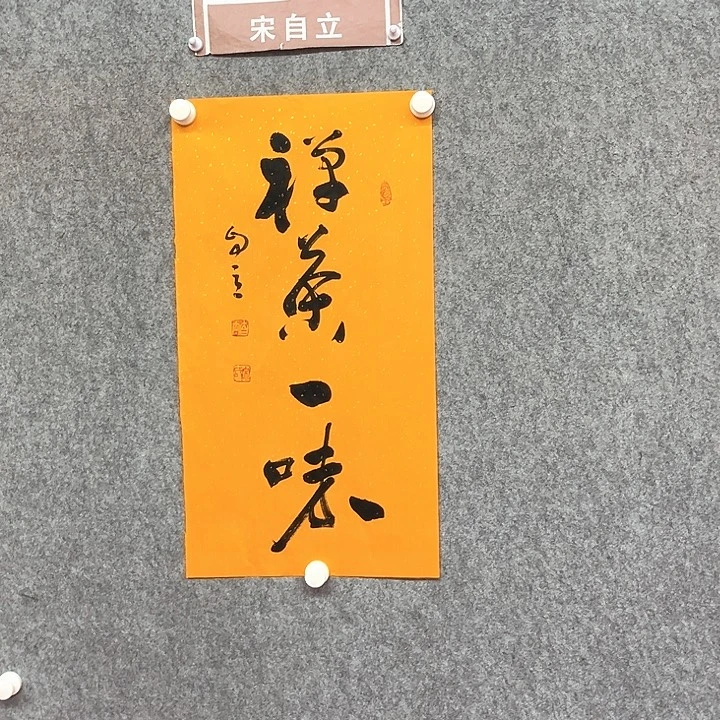 宋自立
禅茶一味
自立